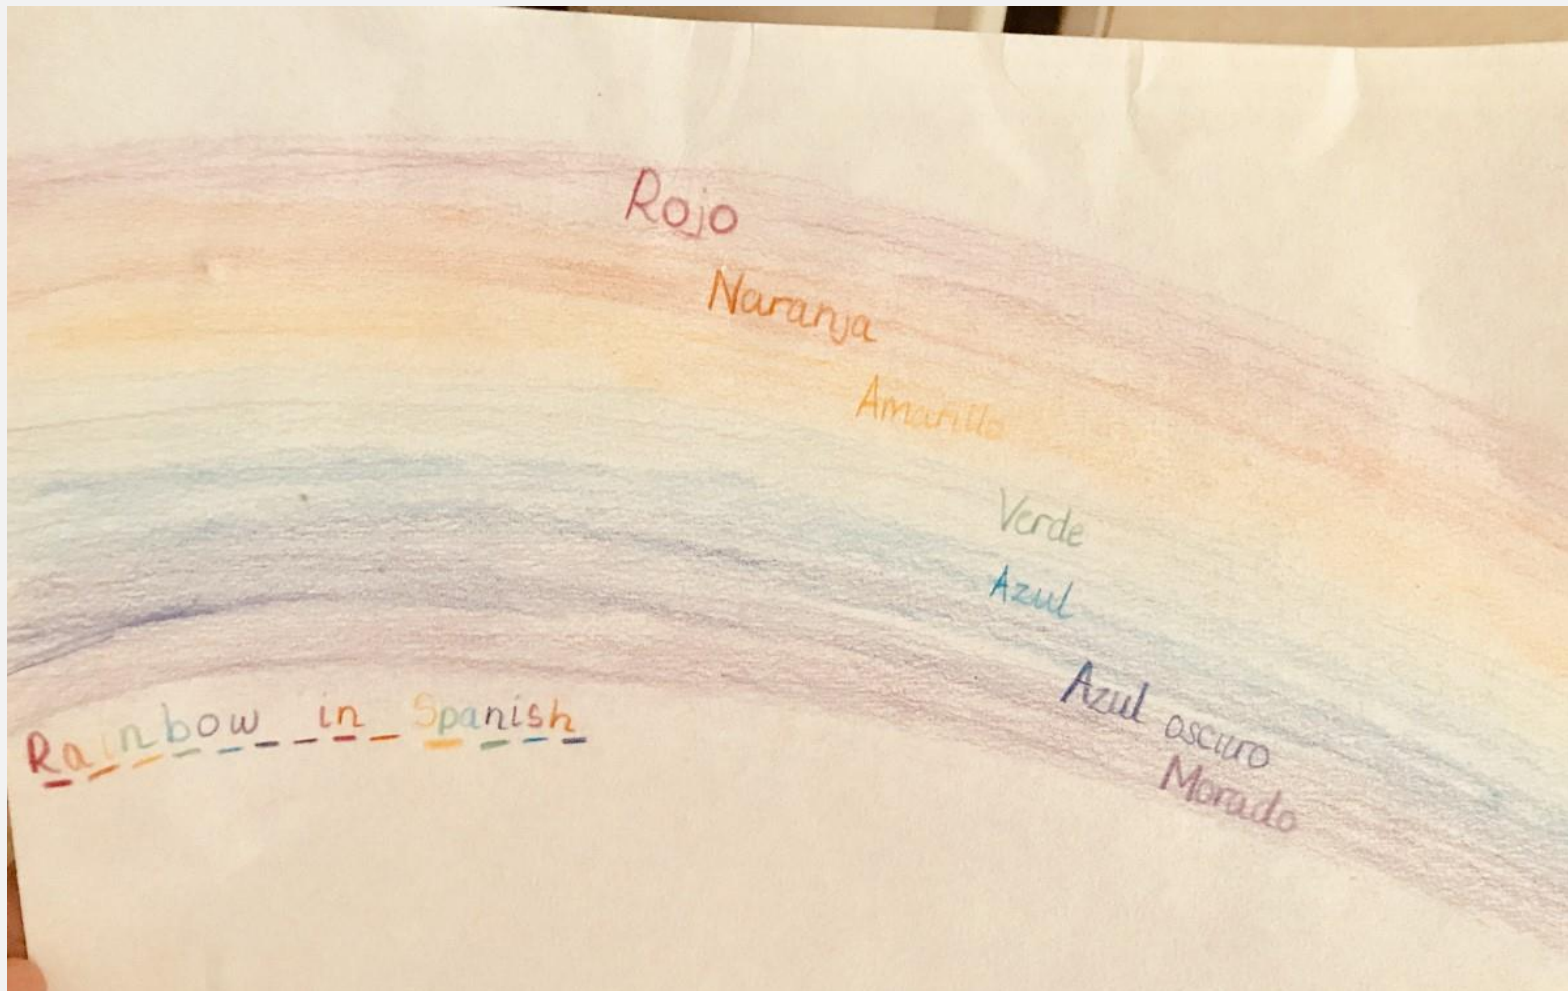 Rojo
Naranja
Amarillo
Verde
Azul
Azul oscuro
Morado
Rainbow in Spanish